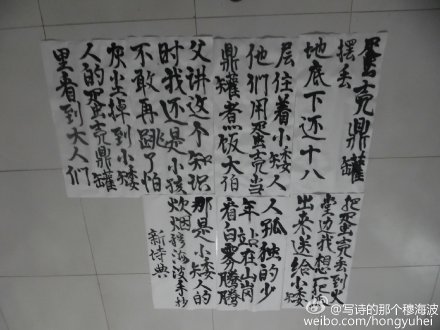 蛋壳鼎罐
摆丢
地底下还十八
层住着小矮人
他们用蛋壳当
鼎罐煮饭大伯
父讲这个知识
时我还是小孩
不敢再跳了怕
灰尘掉到小矮
人的蛋壳鼎罐
里看到大人们
把蛋壳丢到火
堂边我想
出来送给小矮
人孤独的少
年站在山岗
看白雾腾腾
那是小矮人的
炊烟穆海波手抄
新诗典
@写诗的那个穆海波
weibo.com/hongyuhei